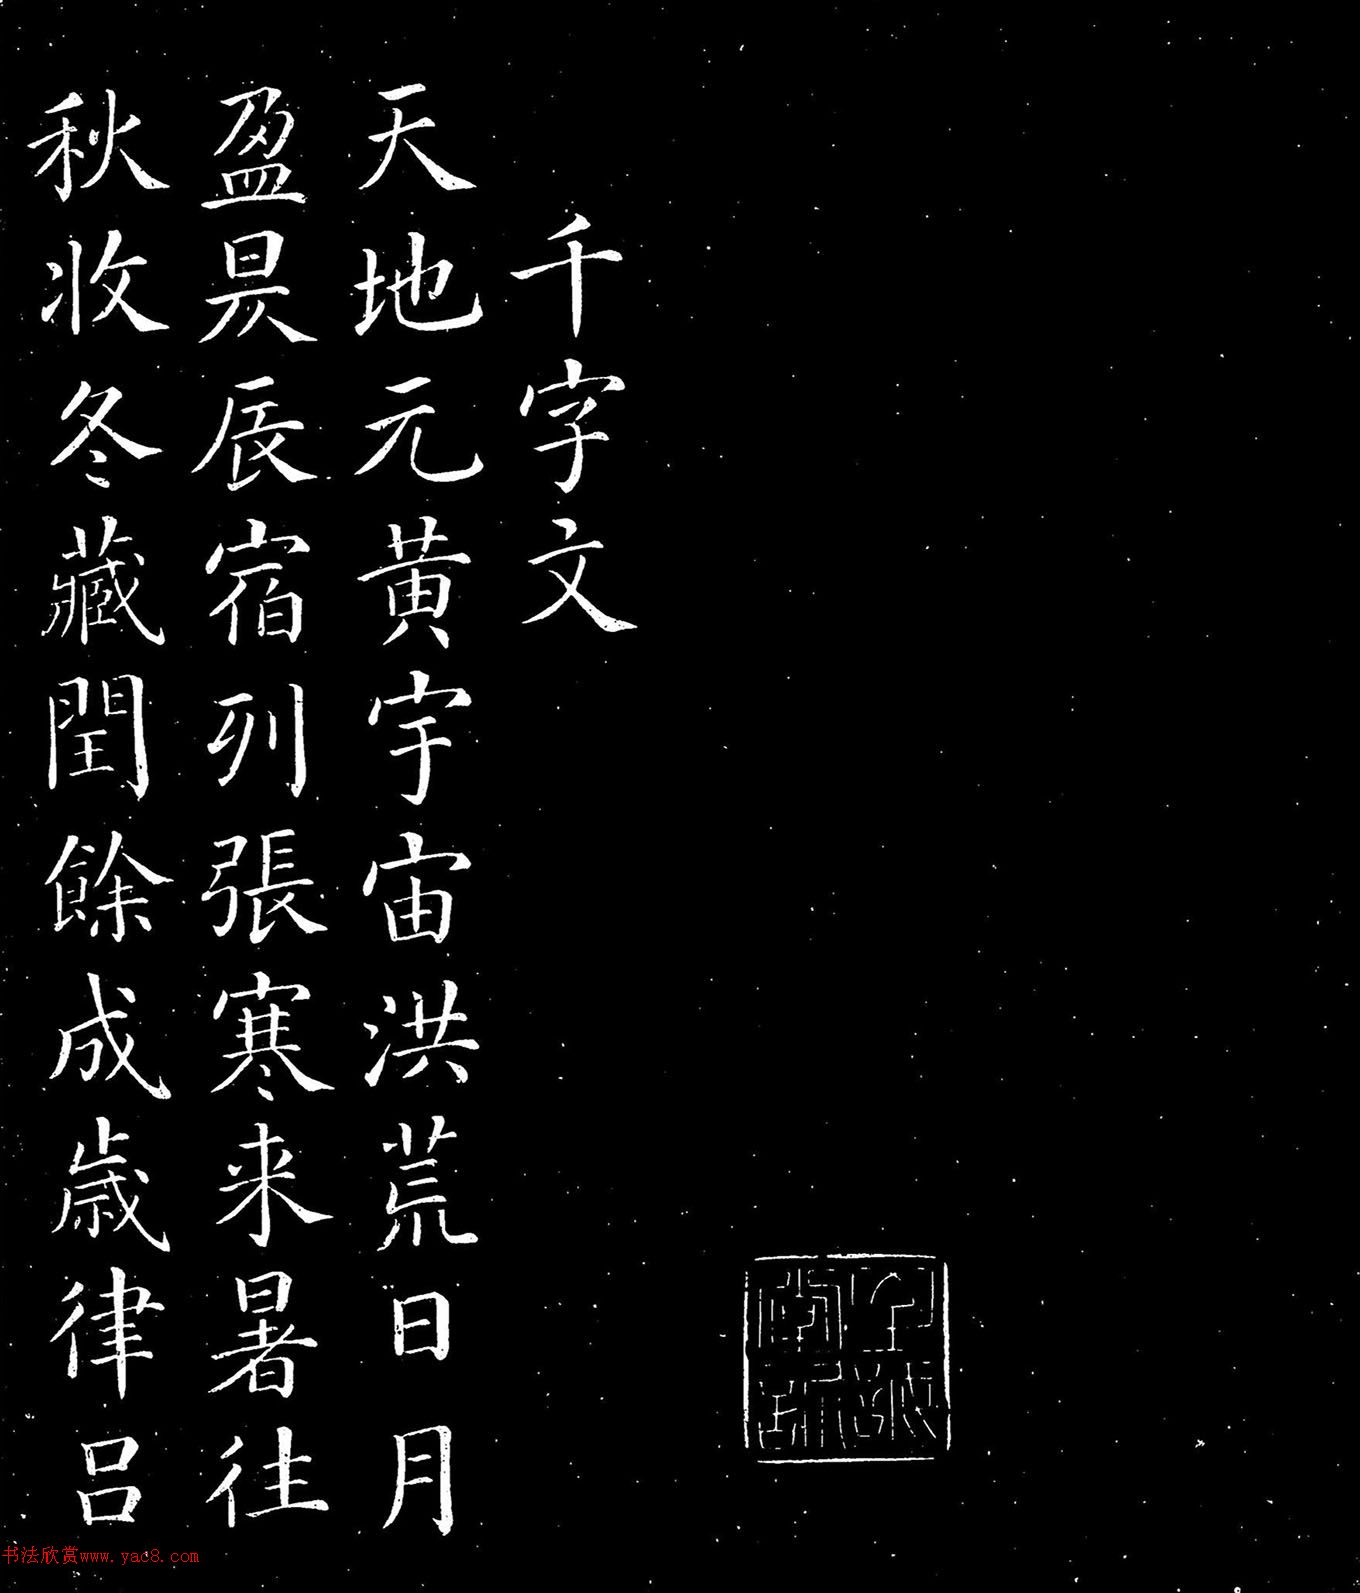 千字文
天地元黄宇宙洪荒日月
盈昃辰宿列張寒来暑往
秋收冬藏閏餘成歳律吕
书法欣赏www.yac8.com